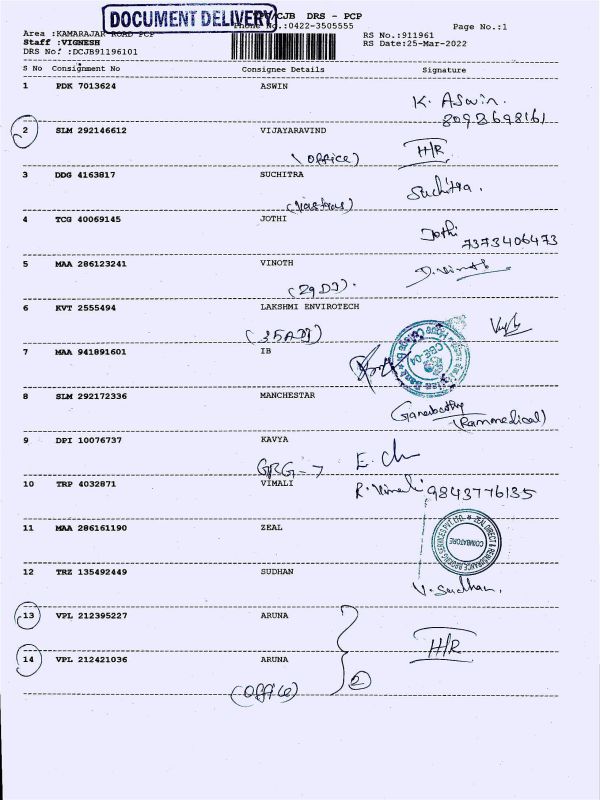 DOCUMENT DELIVERY
/CJB DRS - PCP
Phone No.:0422-3505555
Page No.:1
Area :KAMARAJAR ROAD PCP
RS No.:911961
Staff :VIGNESH
RS Date:25-Mar-2022
DRS No: :DCJB91196101
S No Consignment No Consignee Details Signature
1 PDK 7013624 ASWIN
K. Aswin.
8098698161
2 SLM 292146612 VIJAYARAVIND
(Office) H/R
3 DDG 4163817 SUCHITRA
Suchitra.
4 TCG 40069145 JOTHI
Jothi
7373406473
5 MAA 286123241 VINOTH
D.Vinoth
6 KVT 2555494 LAKSHMI ENVIROTECH
7 MAA 941891601 IB
CBE-04
8 SLM 292172336 MANCHESTAR
(Rammedical)
9 DPI 10076737 KAVYA
GRG
10 TRP 4032871 VIMALI
R.Vimali 9843776135
11 MAA 286161190 ZEAL
COIMBATORE
12 TRZ 135492449 SUDHAN
V. Sudhan.
13 VPL 212395227 ARUNA
H/R
14 VPL 212421036 ARUNA
(Office) 2